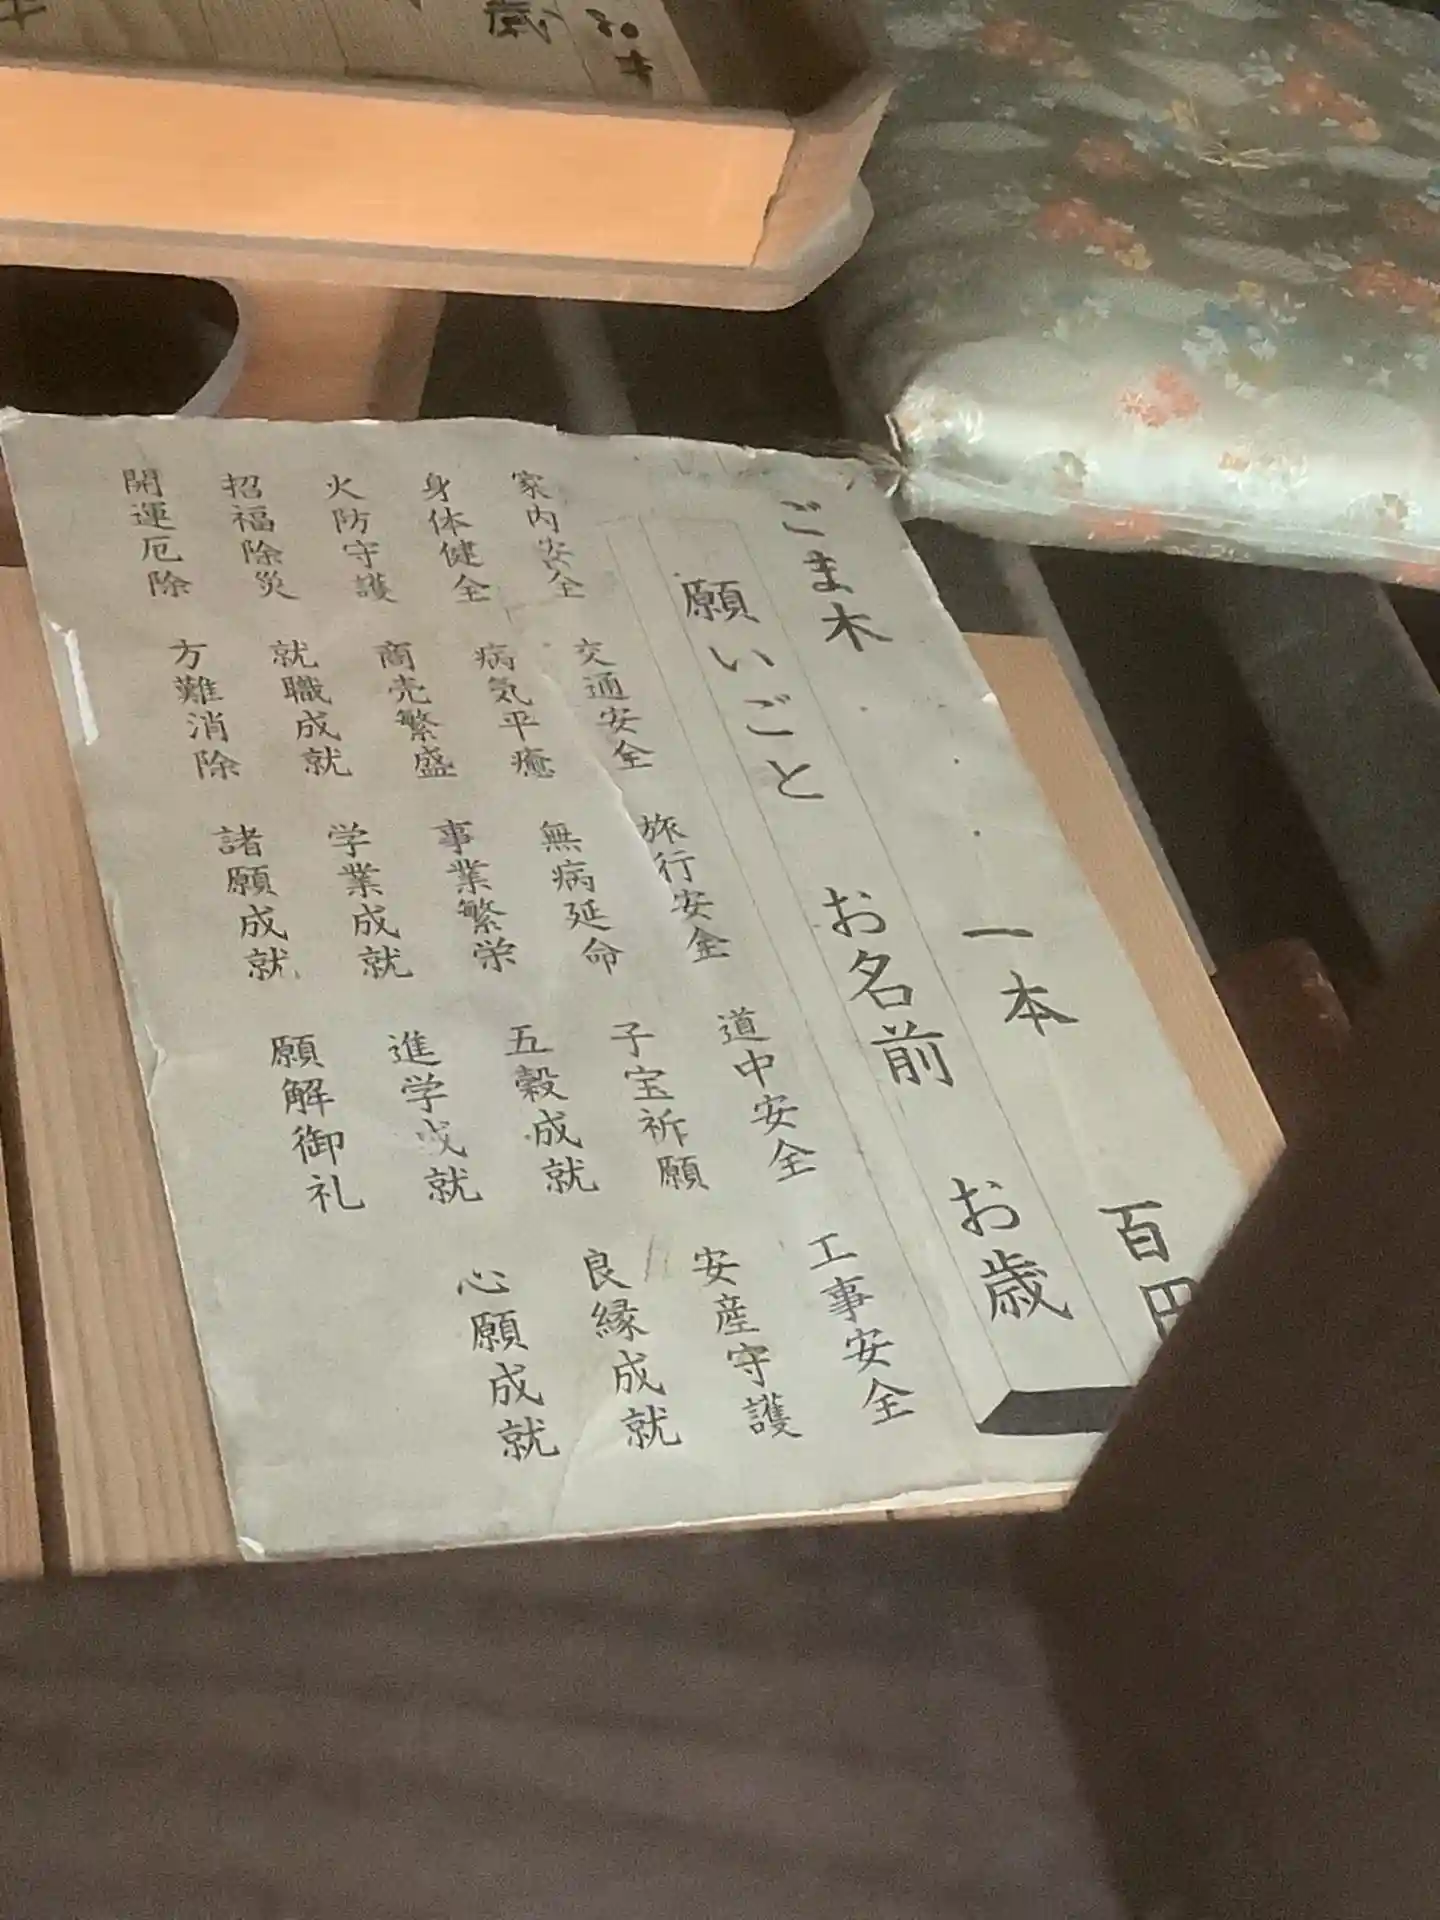 ごま木 一本 百円
願いごと お名前 お歳
家内安全 交通安全 旅行安全 道中安全 工事安全
身体健全 病気平癒 無病延命 子宝祈願 安産守護
火防守護 商売繁盛 事業繁栄 五穀成就 良縁成就
招福除災 就職成就 学業成就 進学成就 心願成就
開運厄除 方難消除 諸願成就 願解御礼